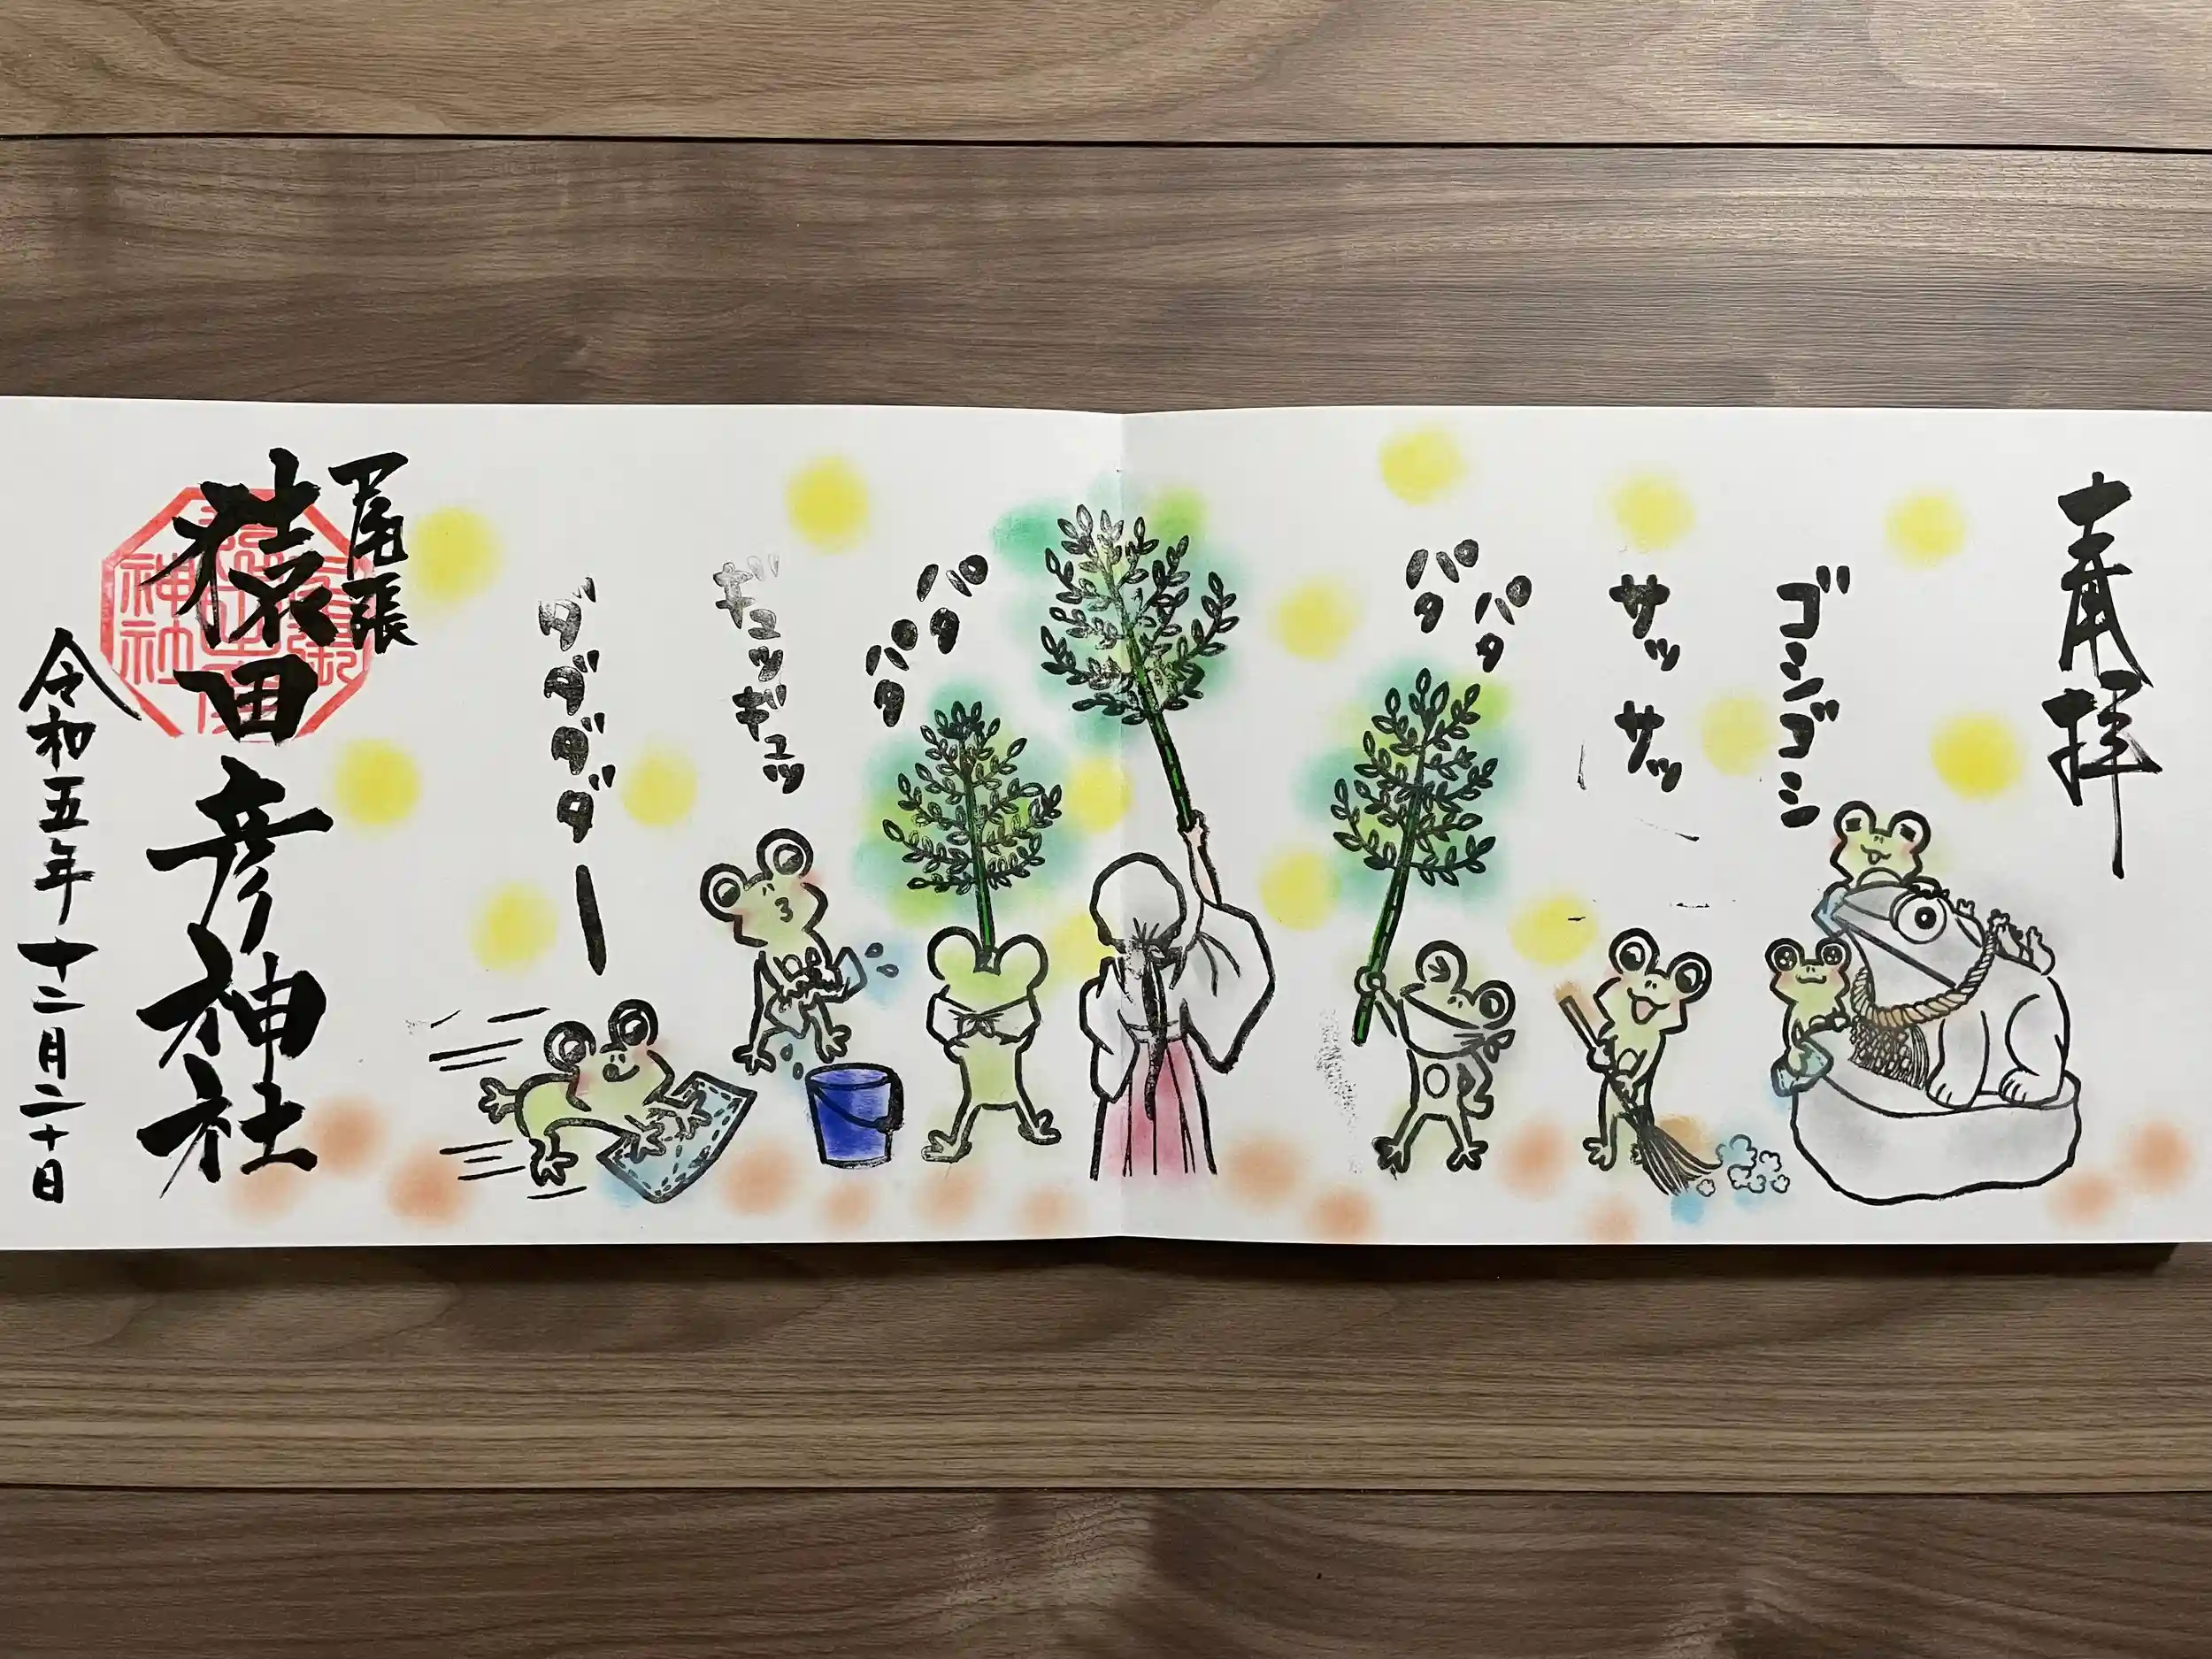 奉拝
ゴシゴシ
サッサッ
パタ
パタ
パタ
パタ
ギュッギュッ
ダダダダー
尾張
猿田彦神社
令和五年十二月二十日